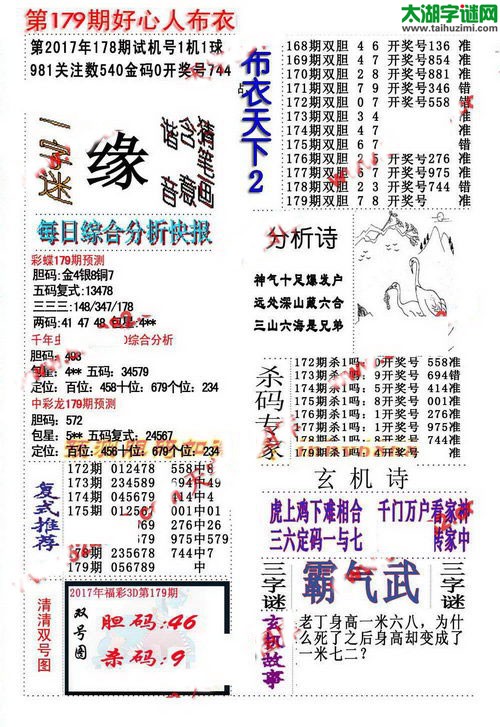 太湖字谜网
www.taihuzimi.com
第179期好心人布衣
第2017年178期试机号1机1球
981关注数540金码0开奖号744
一字迷
缘
猜含猪
音意笔画
每日综合分析快报
彩蝶179期预测
胆码:金4银8铜7
五码复式:13478
三三三:148/347/178
两码:41 47 48 包星:4**
千年 综合分析
胆码:493
包星:4** 五码:34579
定位:百位:458十位:679个位:234
中彩龙179期预测
胆码:572
包星:5** 五码复式:24567
定位:百位:456十位:679个位:234
复式推荐
172期 012478 558中8
173期 234589 694中49
174期 045679 814中4
175期 012567 001中01
178期 235678 744中7
179期 056789 中
清清双号图
2017年福彩3D第179期
双号图
胆码:46
杀码:9
布衣天下2
168期双胆 4 6 开奖号136 准
169期双胆 4 7 开奖号854 准
170期双胆 2 8 开奖号881 准
171期双胆 7 9 开奖号346 错
172期双胆 0 7 开奖号558 错
173期双胆 3 4 准
174期双胆 6 7 准
176期双胆 2 6 开奖号276 准
177期双胆 5 8 开奖号975 准
178期双胆 2 3 开奖号744 错
179期双胆 7 8 开奖号 准
分析诗
神气十足爆发户
远处深山藏六合
三山六海是兄弟
杀码专家
172期杀1吗:0开奖号 558准
173期杀1吗:9开奖号 694错
174期杀1吗:5开奖号 814准
175期杀1吗:8开奖号 001准
176期杀1吗:4开奖号 276准
177期杀1吗:1开奖号 975准
178期杀1吗:8开奖号 744准
179期杀1吗:4开奖号 准
玄机诗
虎上鸡下难相合 千门万户看家神
三六定码一与七 传家中
三字谜
霸气武
三字谜
玄机故事
老丁身高一米六八,为什
么死了之后身高却变成了
一米七二?